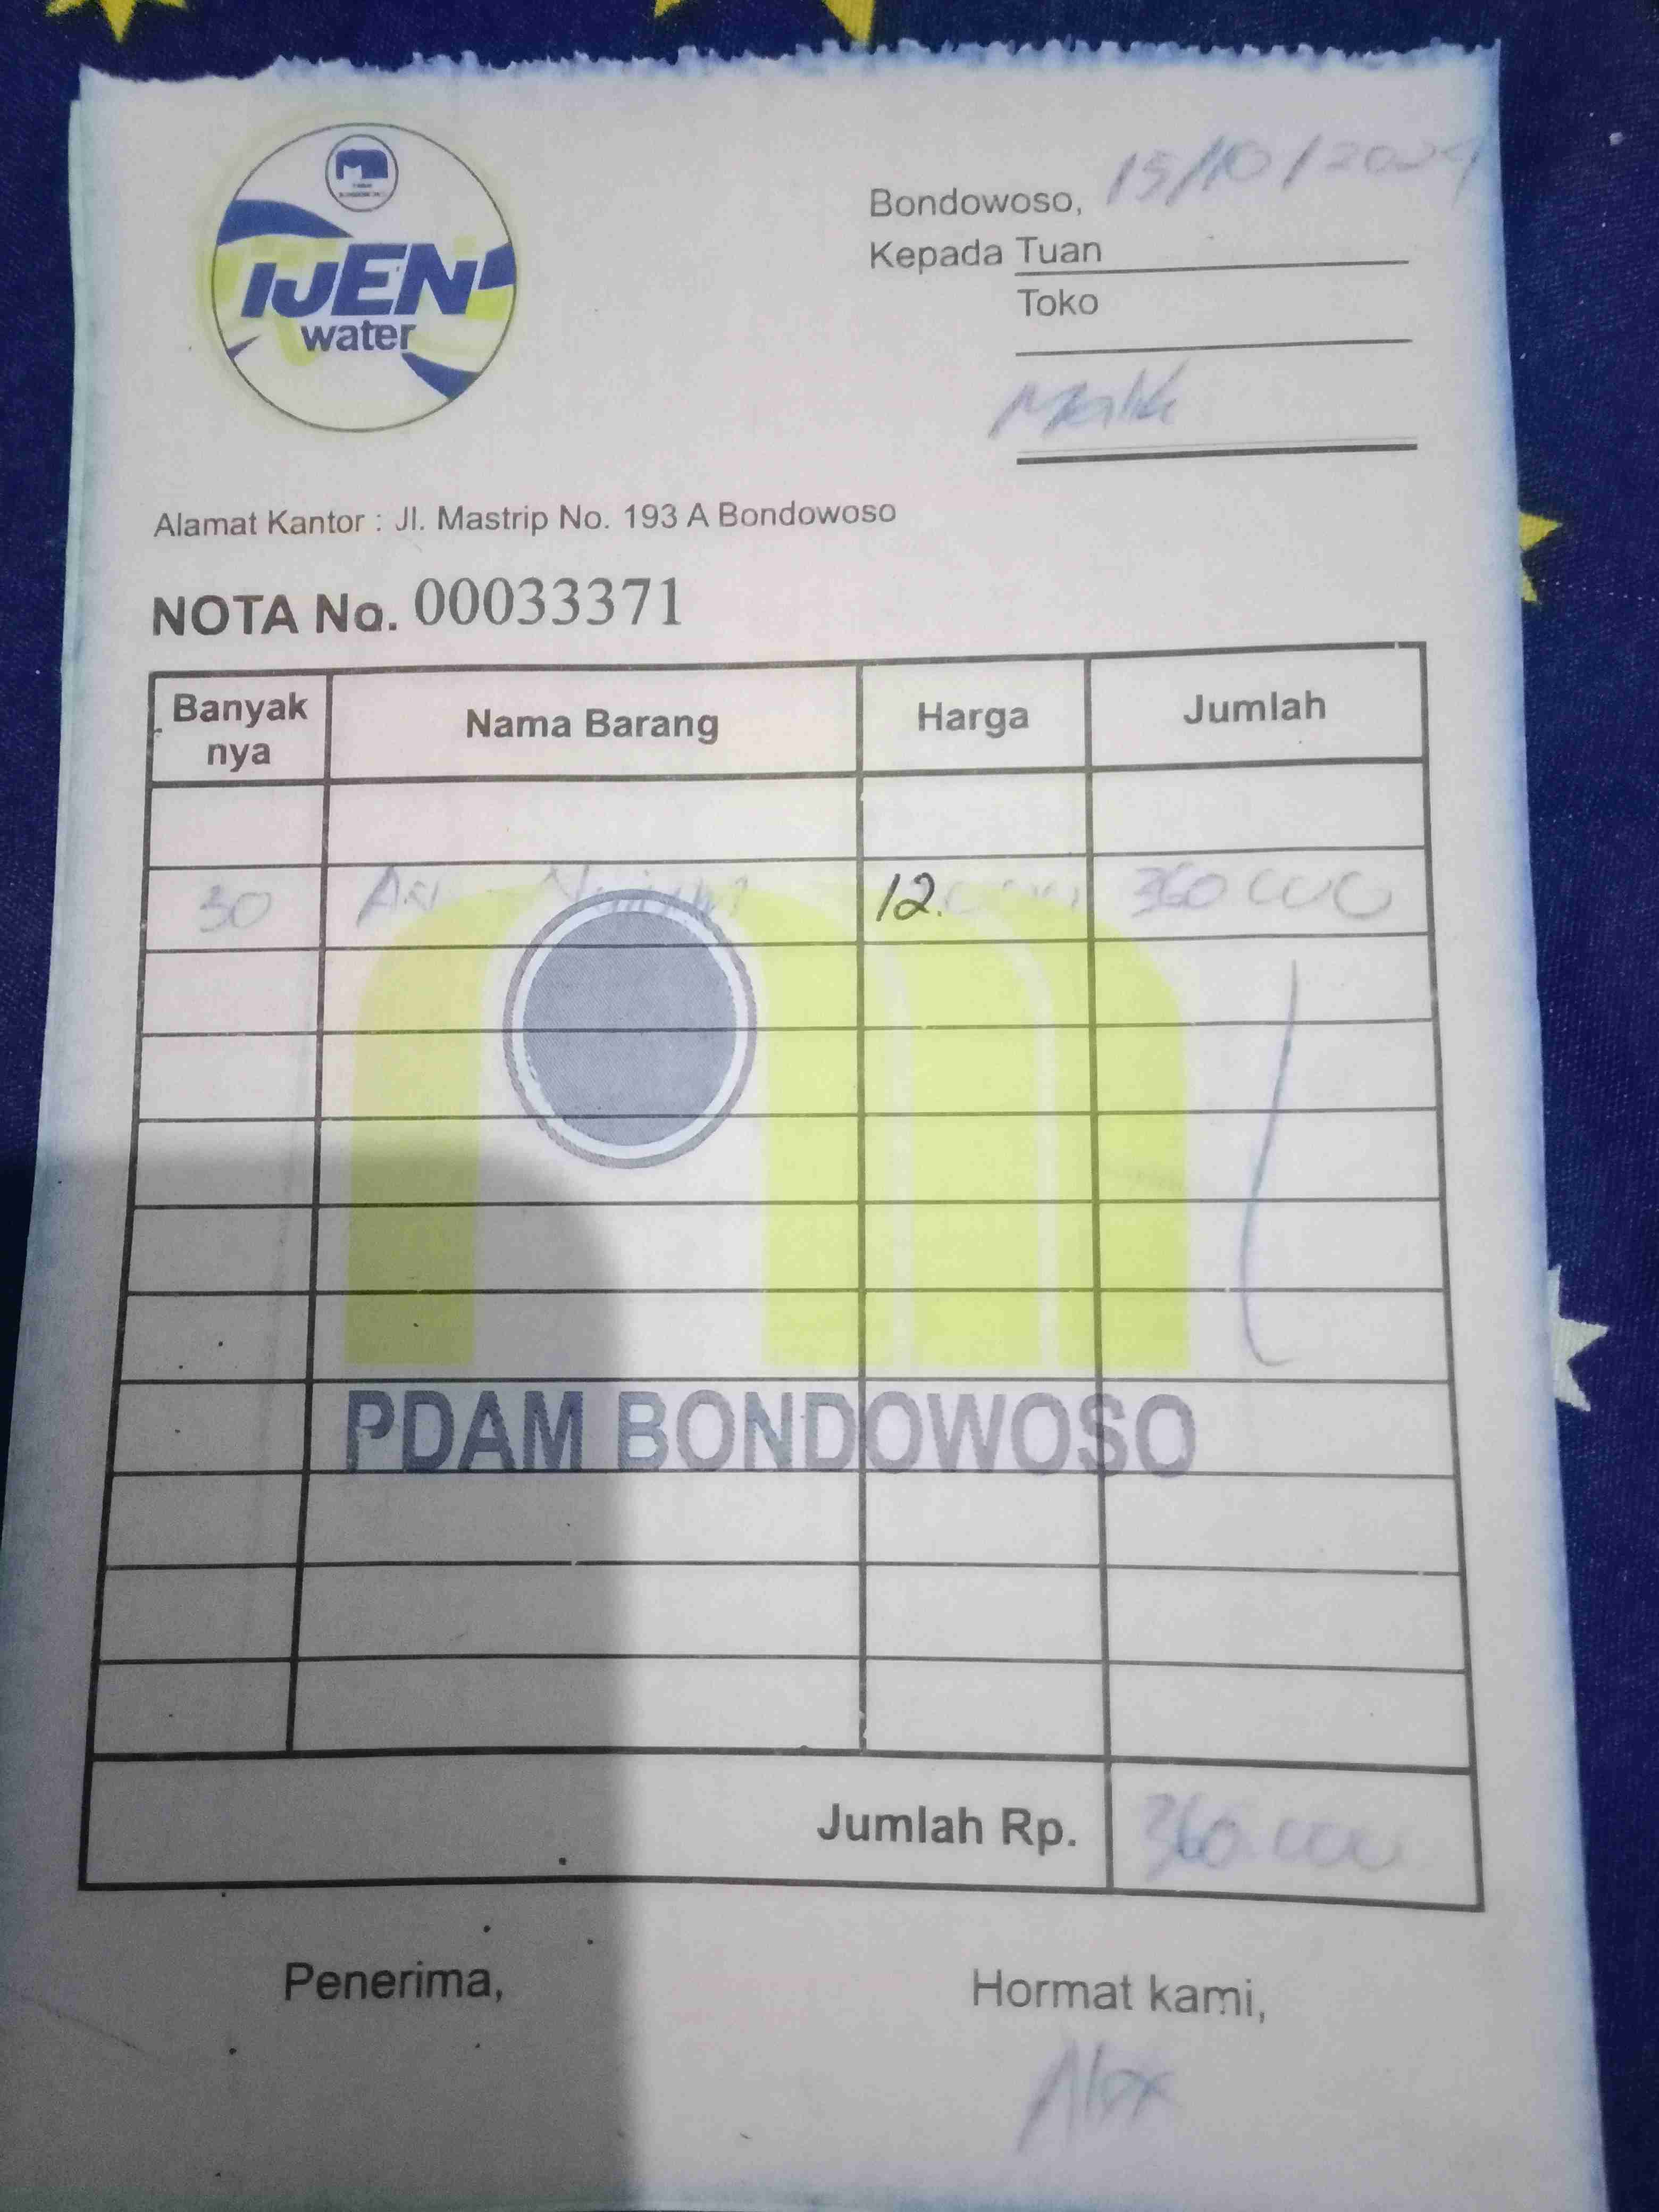 IJEN
water
Bondowoso, 15/10/2024
Kepada Tuan
Toko
Malik
Alamat Kantor : Jl. Mastrip No. 193 A Bondowoso
NOTA No. 00033371
Banyak nya Nama Barang Harga Jumlah
30 12.000 360 000
PDAM BONDOWOSO
Jumlah Rp. 360.000
Penerima, Hormat kami,
Alex